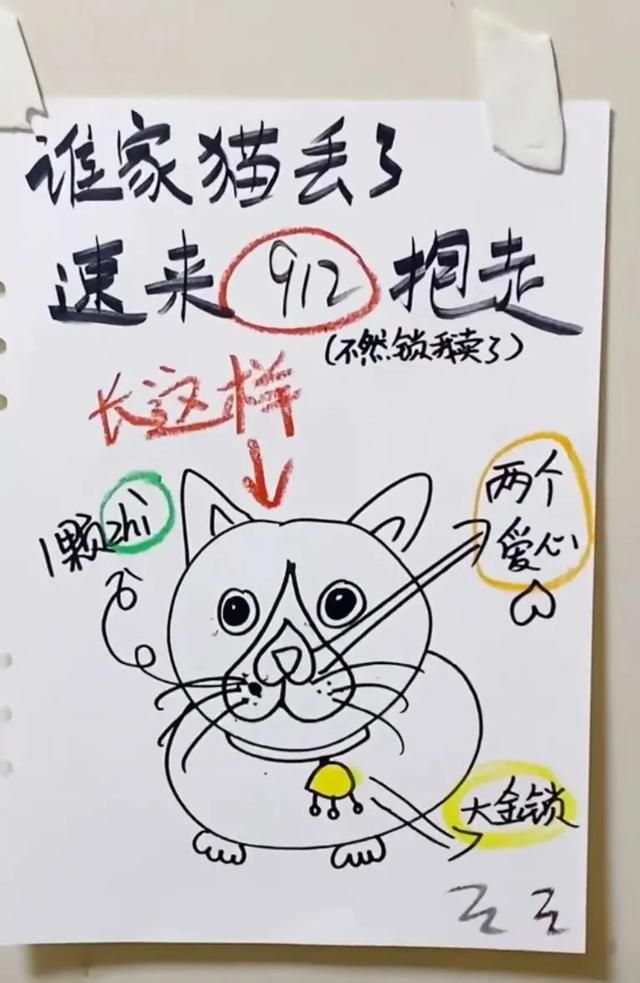 谁家猫丢了
速来 912 抱走
(不然锁我卖了)
长这样
1颗zhì
两个
爱心
大金锁